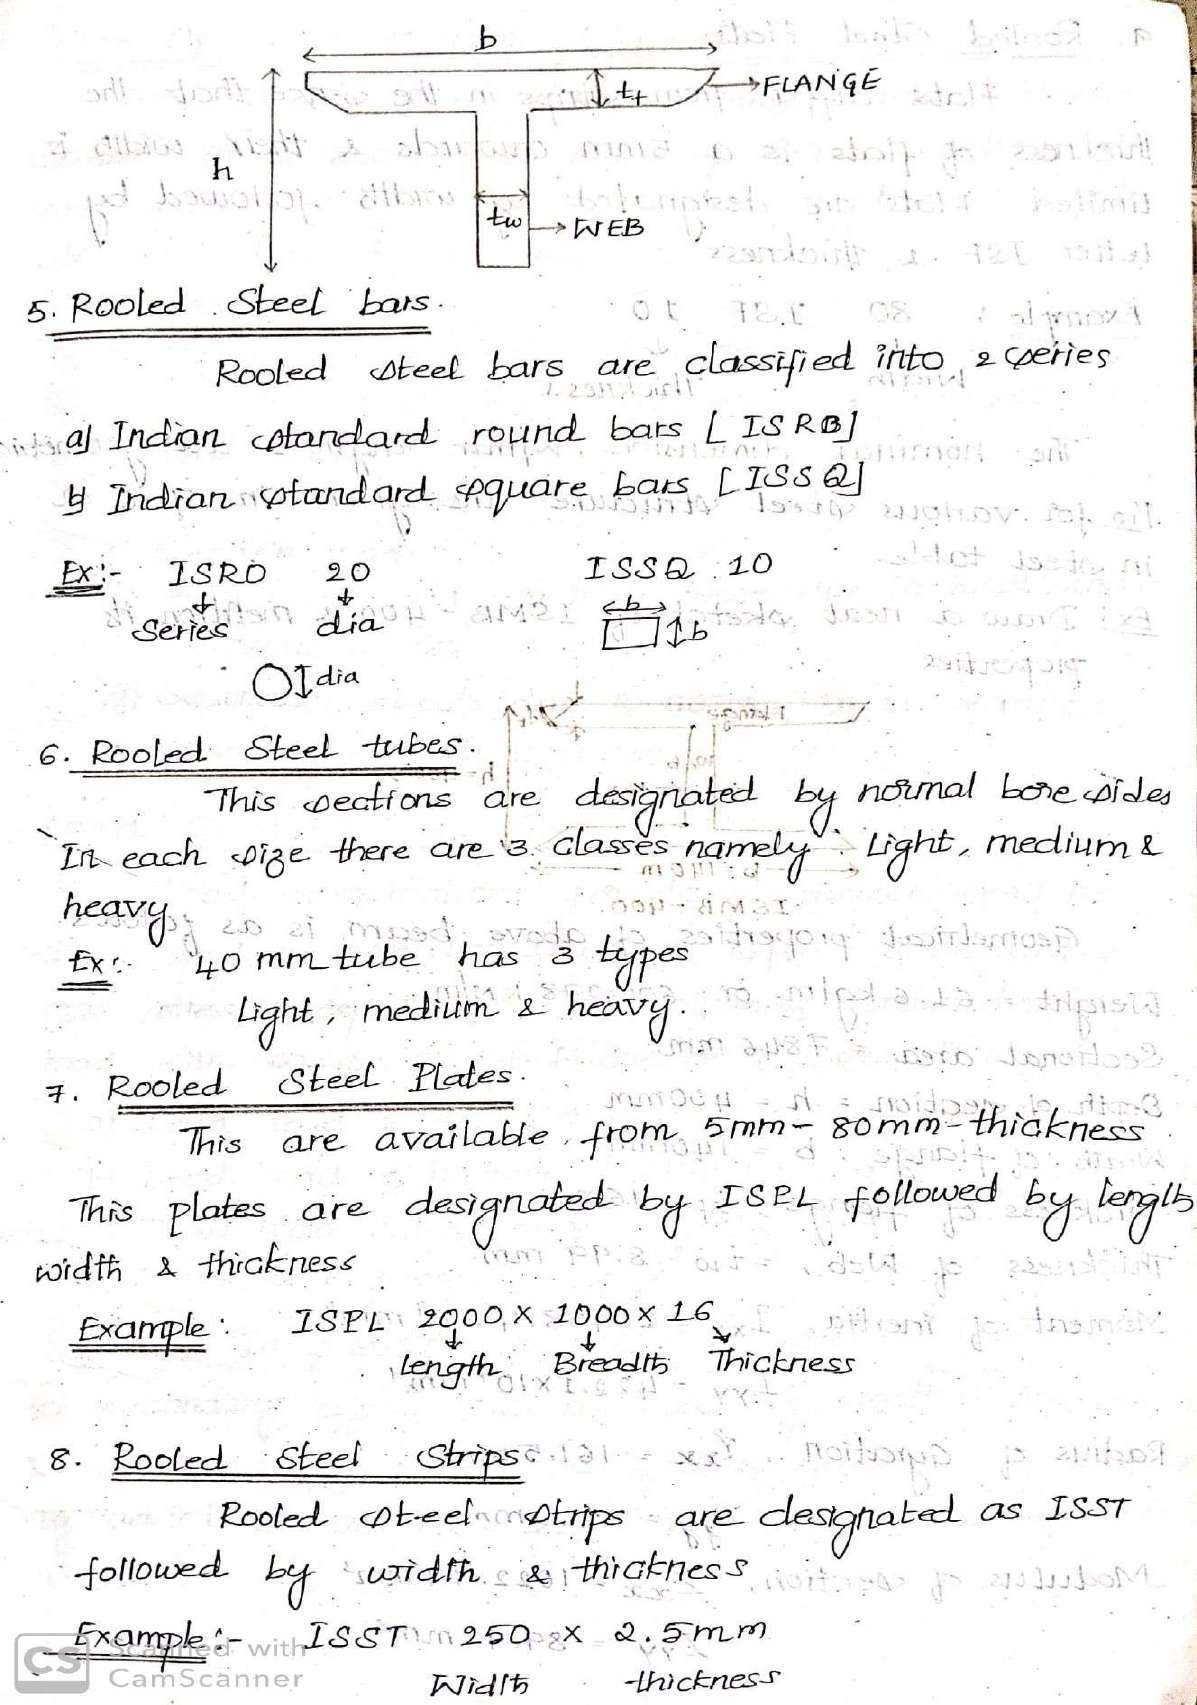 b
tf
FLANGE
h
tw
WEB
5. Rooled Steel bars.
Rooled steel bars are classified into 2 series
a] Indian standard round bars [ISRB]
b] Indian standard square bars [ISSQ]
Ex:- ISRO 20 ISSQ 10
Series dia b b
dia
6. Rooled Steel tubes.
This sections are designated by normal bore sides
In each size there are 3 classes namely Light, medium &
heavy
Ex:- 40 mm tube has 3 types
Light, medium & heavy.
7. Rooled Steel Plates.
This are available from 5mm - 80mm thickness
This plates are designated by ISPL followed by length
width & thickness
Example: ISPL 2000 x 1000 x 16
Length Breadth Thickness
8. Rooled Steel Strips
Rooled steel strips are designated as ISST
followed by width & thickness
Example:- ISST 250 x 2.5mm
Width thickness
CS Scanned with
CamScanner